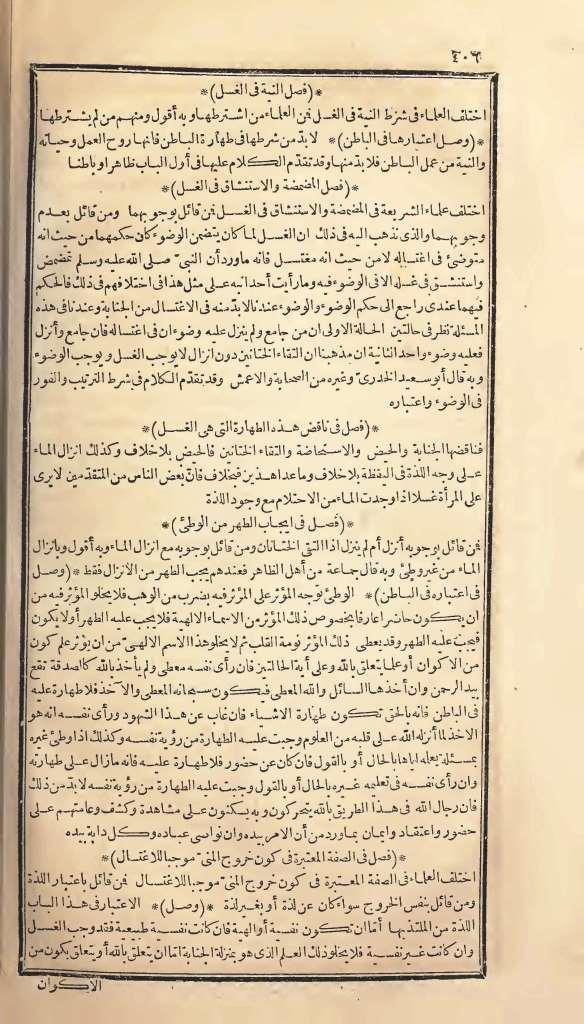 ٤٠٦
*(فصل النية فى الغسل)*
اختلف العلماء فى شرط النية فى الغسل فمن العلماء من اشترطها وبه أقول ومنهم من لم يشترطها
*(وصل اعتبارها فى الباطن)* لابد من شرطها فى طهارة الباطن فانها روح العمل وحياته
والنية من عمل الباطن فلابد منها وقد تقدم الكلام عليها فى أول الباب ظاهرا وباطنا
*(فصل المضمضة والاستنشاق فى الغسل)*
اختلف علماء الشريعة فى المضمضة والاستنشاق فى الغسل فمن قائل بوجوبهما ومن قائل بعدم
وجوبهما والذى نذهب اليه فى ذلك ان الغسل لما كان يتضمن الوضوء كان حكمهما من حيث انه
متوضئ فى اغتساله لا من حيث انه مغتسل فانه ماورد أن النبىّ صلى الله عليه وسلم تمضمض
واستنشق فى غسله الا فى الوضوء فيه وما رأيت أحدا نبه على مثل هذا فى اختلافهم فى ذلك فالحكم
فيهما عندى راجع الى حكم الوضوء والوضوء عندنا لابد منه فى الاغتسال من الجنابة وعندنا فى هذه
المسئلة نظر فى حالتين الحالة الاولى ان من جامع ولم ينزل عليه وضوءان فى اغتساله فان جامع وأنزل
فعليه وضوء واحد الثانية ان مذهبنا ان التقاء الختانين دون انزال لا يوجب الغسل ويوجب الوضوء
وبه قال أبو سعيد الخدرىّ وغيره من الصحابة والاعمش وقد تقدم الكلام فى شرط الترتيب والفور
فى الوضوء واعتباره
*(فصل فى ناقض هذه الطهارة التى هى الغسل)*
فناقضها الجنابة والحيض والاستحاضة والتقاء الختانين فالحيض بلا خلاف وكذلك انزال الماء
على وجه اللذة فى اليقظة بلا خلاف وما عدا هذين فبخلاف فانّ بعض الناس من المتقدمين لا يرى
على المرأة غسلا اذا وجدت الماء من الاحتلام مع وجود اللذة
*(فصل فى ايجاب الطهر من الوطئ)*
فمن قائل بوجوبه أنزل أم لم ينزل اذا التقى الختانان ومن قائل بوجوبه مع انزال الماء وبه أقول وبانزال
الماء من غير وطئ وبه قال جماعة من أهل الظاهر فعندهم يجب الطهر من الانزال فقط *(وصل
فى اعتباره فى الباطن)* الوطئ توجه المؤثر على المؤثر فيه بضرب من الوهب فلا يخلو المؤثر فيه من
ان يكون حاضرا عارفا بخصوص ذلك المؤثر من الاسماء الالهية فلا يجب عليه الطهر أولا يكون
فيجب عليه الطهر وقد يعطى ذلك المؤثر نومة القلب ثم لا يخلو هذا الاسم الالهىّ من ان يؤثر علم كون
من الاكوان أو علما يتعلق بالله وعلى أية الحالتين فان رأى نفسه معطى ولم يأخذ بالله كالصدقة تقع
بيد الرحمن وان أخذها السائل والله المعطى فيكون سبحانه المعطى والآخذ فلا طهارة عليه
فى الباطن فانه بالحق تكون طهارة الاشياء فان غاب عن هذا الشهود ورأى نفسه انه هو
الاخذ لما أنزله الله على قلبه من العلوم وجبت عليه الطهارة من رؤية نفسه وكذلك اذا وطئ غيره
بمسئلة يعلمه اياها بالحال أو بالقول فان كان عن حضور فلا طهارة عليه فانه مازال على طهارته
وان رأى نفسه فى تعليمه غيره بالحال أو بالقول وجبت عليه الطهارة من رؤية نفسه لابد من ذلك
فان رجال الله فى هذا الطريق بالله يتحركون وبه يسكنون على مشاهدة وكشف وعامتهم على
حضور واعتقاد وايمان بما ورد من أن الامر بيده وان نواصى عباده وكل دابة بيده
*(فصل فى الصفة المعتبرة فى كون خروج المنىّ موجبا للاغتسال)*
اختلف العلماء فى الصفة المعتبرة فى كون خروج المنىّ موجبا للاغتسال فمن قائل باعتبار اللذة
ومن قائل بنفس الخروج سواء كان عن لذة أو بغير لذة *(وصل)* الاعتبار فى هذا الباب
اللذة من الملتذ بها أما ان تكون نفسية أو الهية فان كانت نفسية طبيعية فقد وجب الغسل
وان كانت غير نفسية فلا يخلو ذلك العلم الذى هو بمنزلة الجنابة اما ان يتعلق بالله أو يتعلق بكون من
الاكوان